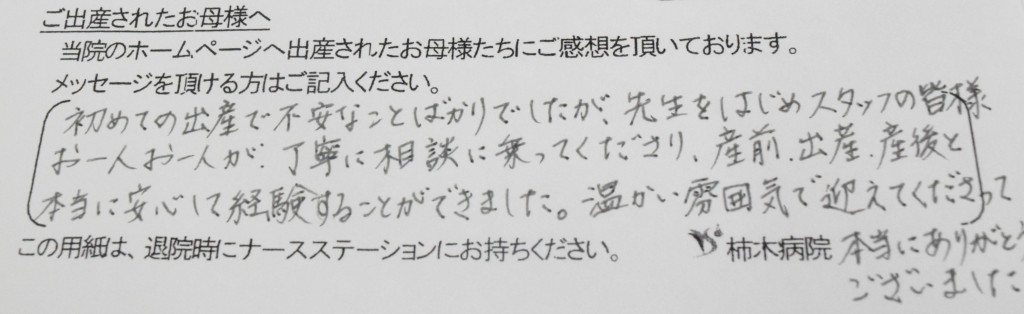 ご出産されたお母様へ
当院のホームページへ出産されたお母様たちにご感想を頂いております。
メッセージを頂ける方はご記入ください。
初めての出産で不安なことばかりでしたが、先生をはじめスタッフの皆様
お一人お一人が、丁寧に相談に乗ってくださり、産前、出産、産後と
本当に安心して経験することができました。温かい雰囲気で迎えてくださって
この用紙は、退院時にナースステーションにお持ちください。
柿木病院
本当にありがとう
ございました